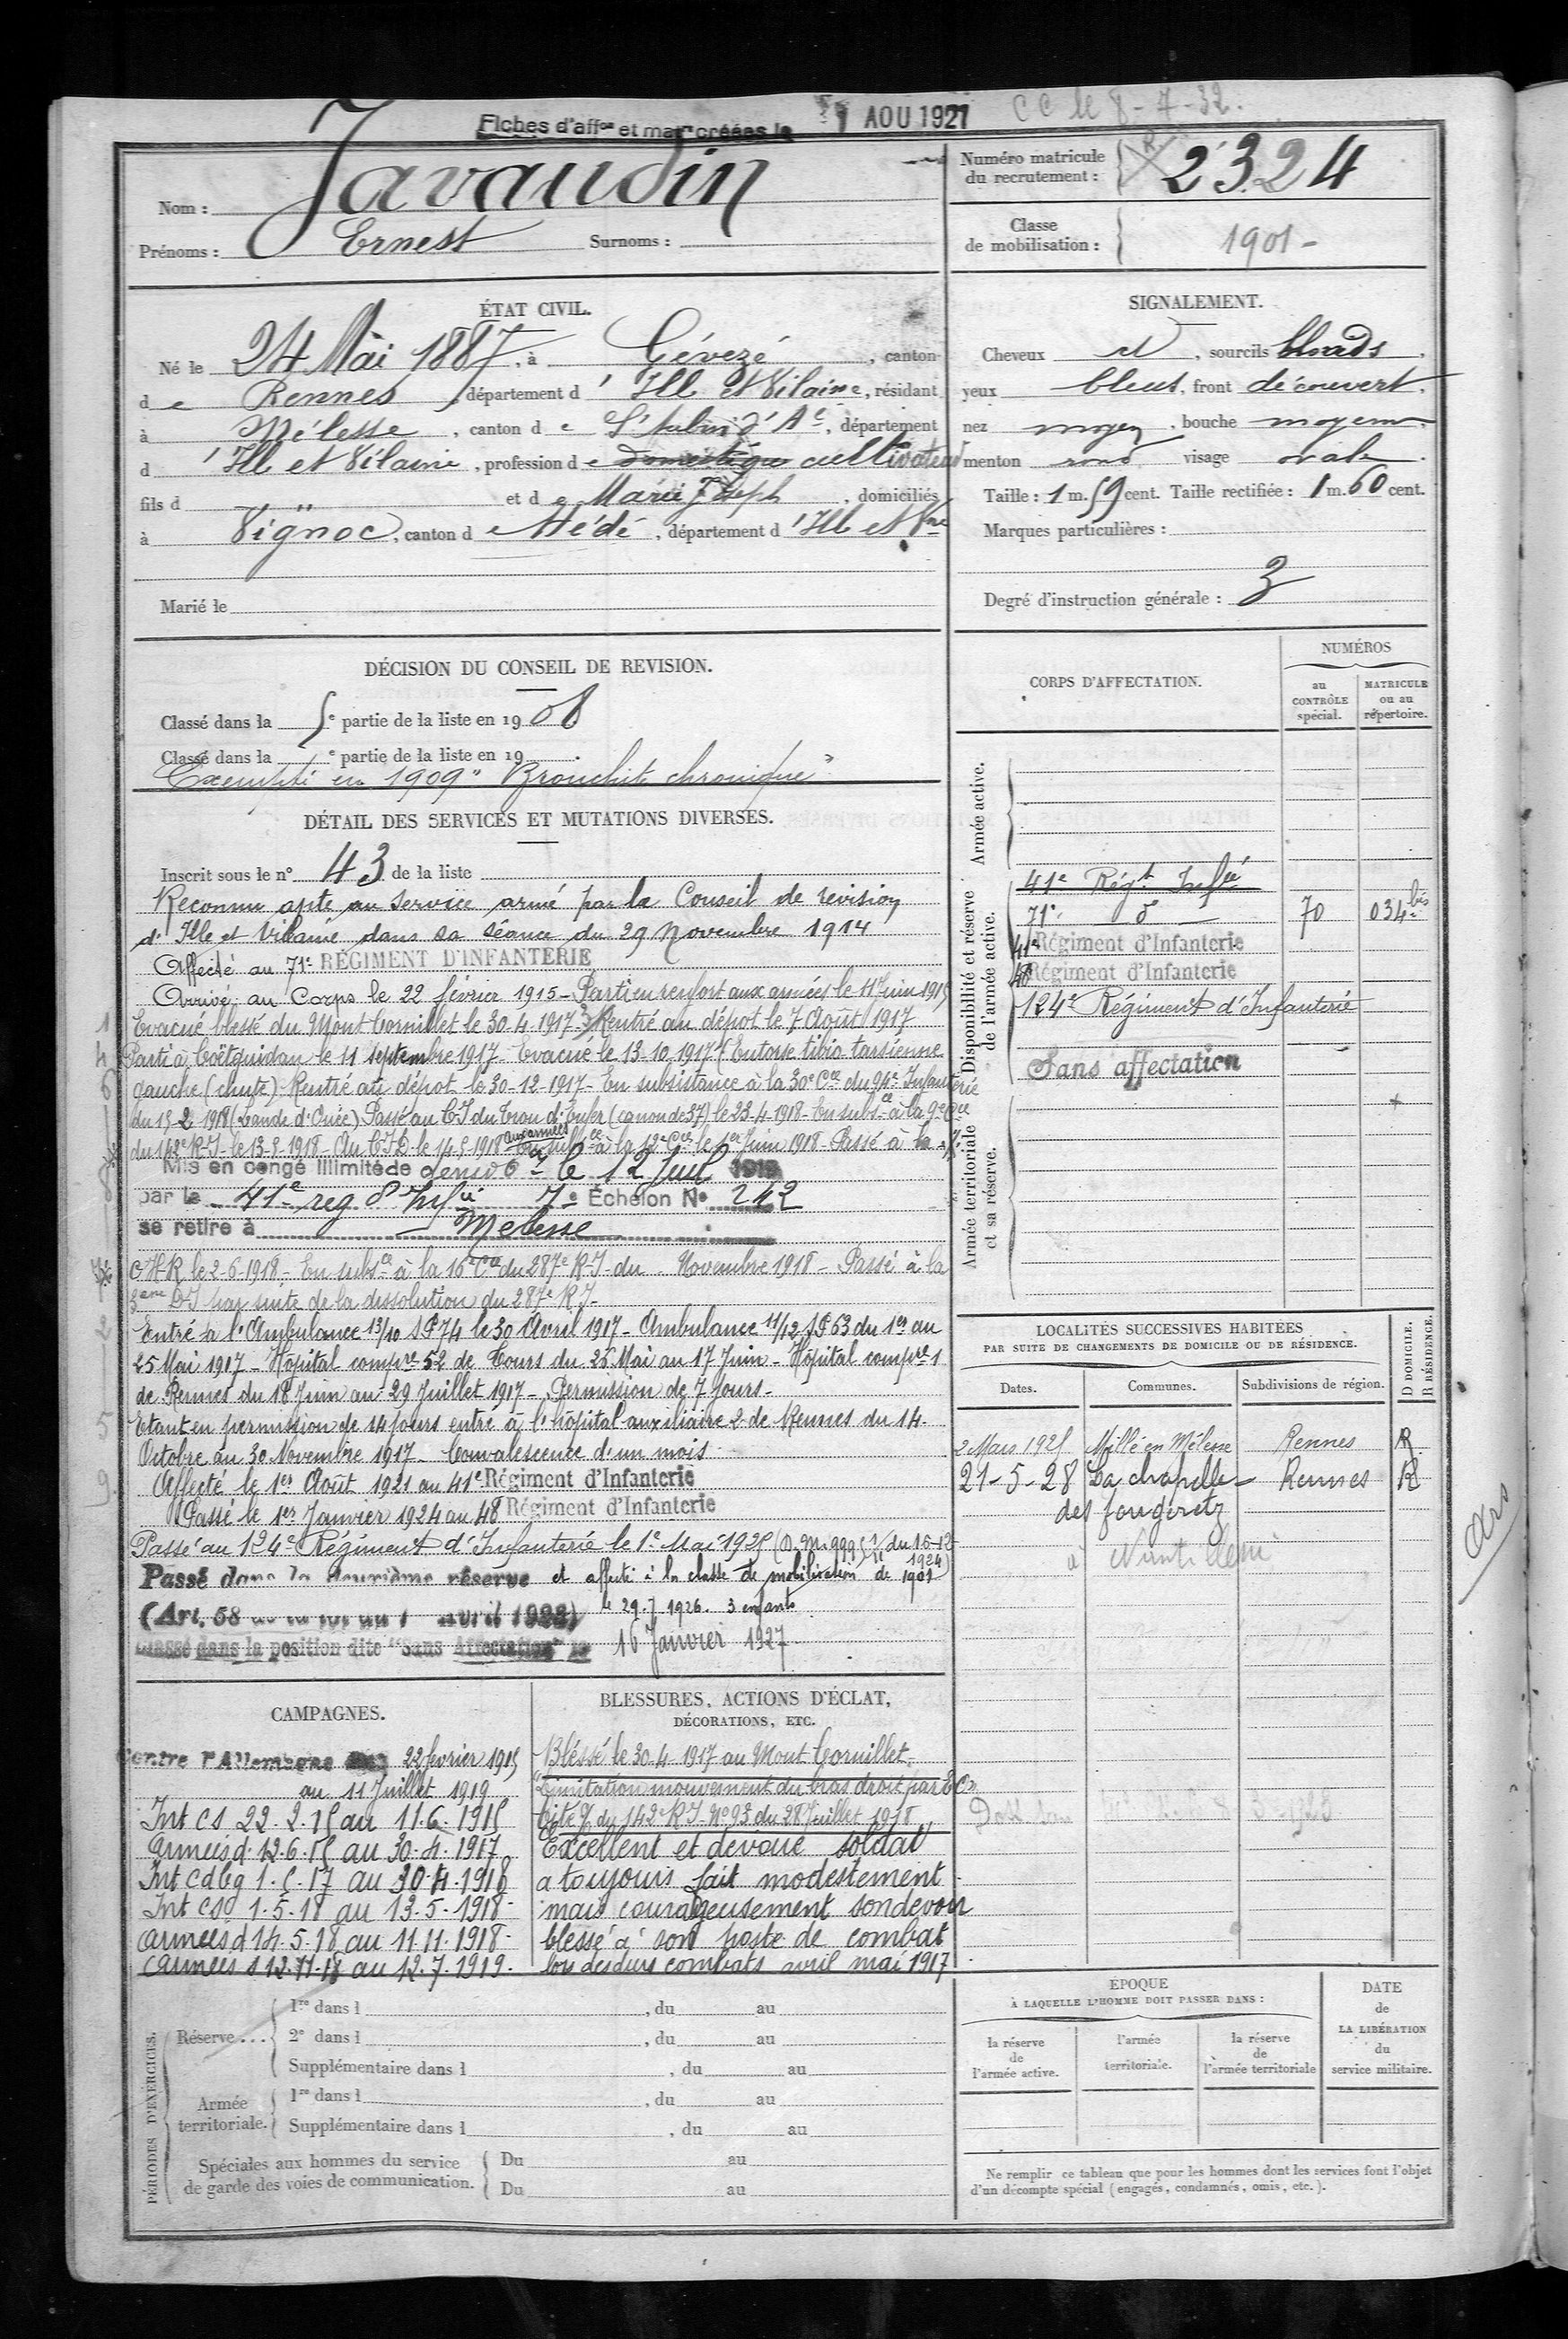 Fiches d'affon et matr créées le 1 AOU 1927
CC le 8-7-32.
Nom : Javaudin
Prénoms : Ernest Surnoms :
Numéro matricule du recrutement : R 2324
Classe de mobilisation : 1901-
ÉTAT CIVIL.
Né le 24 Mai 1887, à Gévezé, canton
de Rennes, département d'Ill et Vilaine, résidant
à Mélesse, canton de St Aubin d'Ae, département
d'Ill et Vilaine, profession de domestique cultivateur
fils d " et de Marie Joseph, domiciliés
à Vignoc, canton d Hédé, département d'Ill et Vne
Marié le
SIGNALEMENT.
Cheveux et, sourcils blonds.
yeux bleus, front découvert,
nez moyen, bouche moyenne,
menton rond visage ovale.
Taille : 1 m. 59 cent. Taille rectifiée : 1 m. 60 cent.
Marques particulières :
Degré d'instruction générale : 3
DÉCISION DU CONSEIL DE REVISION.
Classé dans la 5e partie de la liste en 1908
Classé dans la e partie de la liste en 19 .
Exempté en 1909 "Bronchite chronique"
DÉTAIL DES SERVICES ET MUTATIONS DIVERSES.
Inscrit sous le n° 43 de la liste
Reconnu apte au service armé par le Conseil de revision
d'Ille et Vilaine dans sa séance du 29 Novembre 1914
Affecté au 71e RÉGIMENT D'INFANTERIE
Arrivé au Corps le 22 février 1915 - Parti en renfort aux armées le 11 Juin 1915
Evacué blessé du Mont Cornillet le 30-4-1917 - Rentré au dépot le 7 Août 1917
Parti à Coëtquidan le 11 septembre 1917 - Evacué le 13-10-1917 (Entorse tibio tarsienne
gauche (chute) - Rentré au dépot le 30-12-1917 - En subsistance à la 30e Cie du 94e Infanterie
du 15-2-1918 (Lande d'Ouée) Passé au C.I du Trou d'Enfer (canon de 37) le 23-4-1918 - En subsce à la 9e Cie
du 142e R-I- le 13-5-1918 - Au C.I.D. le 14-5-1918 aux armées En subsce à la 12e Cie le 1er Juin 1918 - Passé à la
Mis en congé illimité de le 12 Juil 1919
par le 41e reg d'Infie 7e Échelon N° 242
se retire à Melesse
CHR le 2-6-1918 - En subsce à la 16e Cie du 287e R-I- du Novembre 1918 - Passé à la
3ème D.I par suite de la dissolution du 287e R I-
Entré à l'Ambulance 13/10 SP 74 le 30 Avril 1917 - Ambulance 11/12 SP 63 du 1er au
25 Mai 1917 - Hôpital compre 52 de Tours du 26 Mai au 17 Juin - Hôpital compre 1
de Rennes du 18 Juin au 29 Juillet 1917 - Permission de 7 jours -
Etant en permission de 14 jours entre à l'hôpital auxiliaire 2 de Rennes du 14
Octobre au 30 Novembre 1917 - Convalescence d'un mois
Affecté le 1er Août 1921 au 41e Régiment d'Infanterie
Passé le 1er Janvier 1924 au 48 Régiment d'Infanterie
Passé au 124e Régiment d'Infanterie le 1e Mai 1925 (D.M. 9995 du 16-12 1924)
Passé dans la deuxième réserve et affecté à la classe de mobilisation de 1901
(Art. 58 de la loi du 1 avril 1923) le 29.7.1926. 3 enfants
Classé dans la position dite "Sans Affectation" le 16 Janvier 1927
1
4
6
5
8
7
2
5
9
CORPS D'AFFECTATION.
NUMÉROS
au CONTRÔLE spécial.
MATRICULE ou au répertoire.
Armée active.
Disponibilité et réserve de l'armée active.
41e Régt Infie
71e d° 70 034 bis
41e Régiment d'Infanterie
48 Régiment d'Infanterie
124e Régiment d'Infanterie
Sans affectation
Armée territoriale et sa réserve.
LOCALITÉS SUCCESSIVES HABITÉES
PAR SUITE DE CHANGEMENTS DE DOMICILE OU DE RÉSIDENCE.
D DOMICILE. R RÉSIDENCE.
Dates. Communes. Subdivisions de région.
2 Mars 1925 Millé en Mélesse Rennes R
21-5-28 La chapelle Rennes R
des fougeretz
Ars
CAMPAGNES.
Contre l'Allemagne 22 février 1915
au 11 Juillet 1919
Int cs 22.2.15 au 11.6.1915
Armées d. 12.6.15 au 30.4.1917
Int cdbg 1.5.17 au 30.4.1918
Int csd 1.5.18 au 13.5.1918
armées d 14.5.18 au 11.11.1918
Armées s 12.11.18 au 12.7.1919.
BLESSURES, ACTIONS D'ÉCLAT,
DÉCORATIONS, ETC.
Bléssé le 30-4-1917 au Mont Cornillet -
"Limitation mouvement du bras droit par
Cité du 142e R-I- N° 93 du 28 Juillet 1918
Excellent et dévoué soldat
a toujours fait modestement
mais courageusement son devoir
blessé à son poste de combat
lors des durs combats avril mai 1917
PÉRIODES D'EXERCICES.
Réserve...
1re dans l , du au
2e dans l , du au
Supplémentaire dans l , du au
Armée territoriale.
1re dans l , du au
Supplémentaire dans l , du au
Spéciales aux hommes du service
de garde des voies de communication.
Du au
Du au
ÉPOQUE
À LAQUELLE L'HOMME DOIT PASSER DANS :
la réserve de l'armée active.
l'armée territoriale.
la réserve de l'armée territoriale
DATE de LA LIBÉRATION du service militaire.
Ne remplir ce tableau que pour les hommes dont les services font l'objet
d'un décompte spécial (engagés, condamnés, omis, etc.).